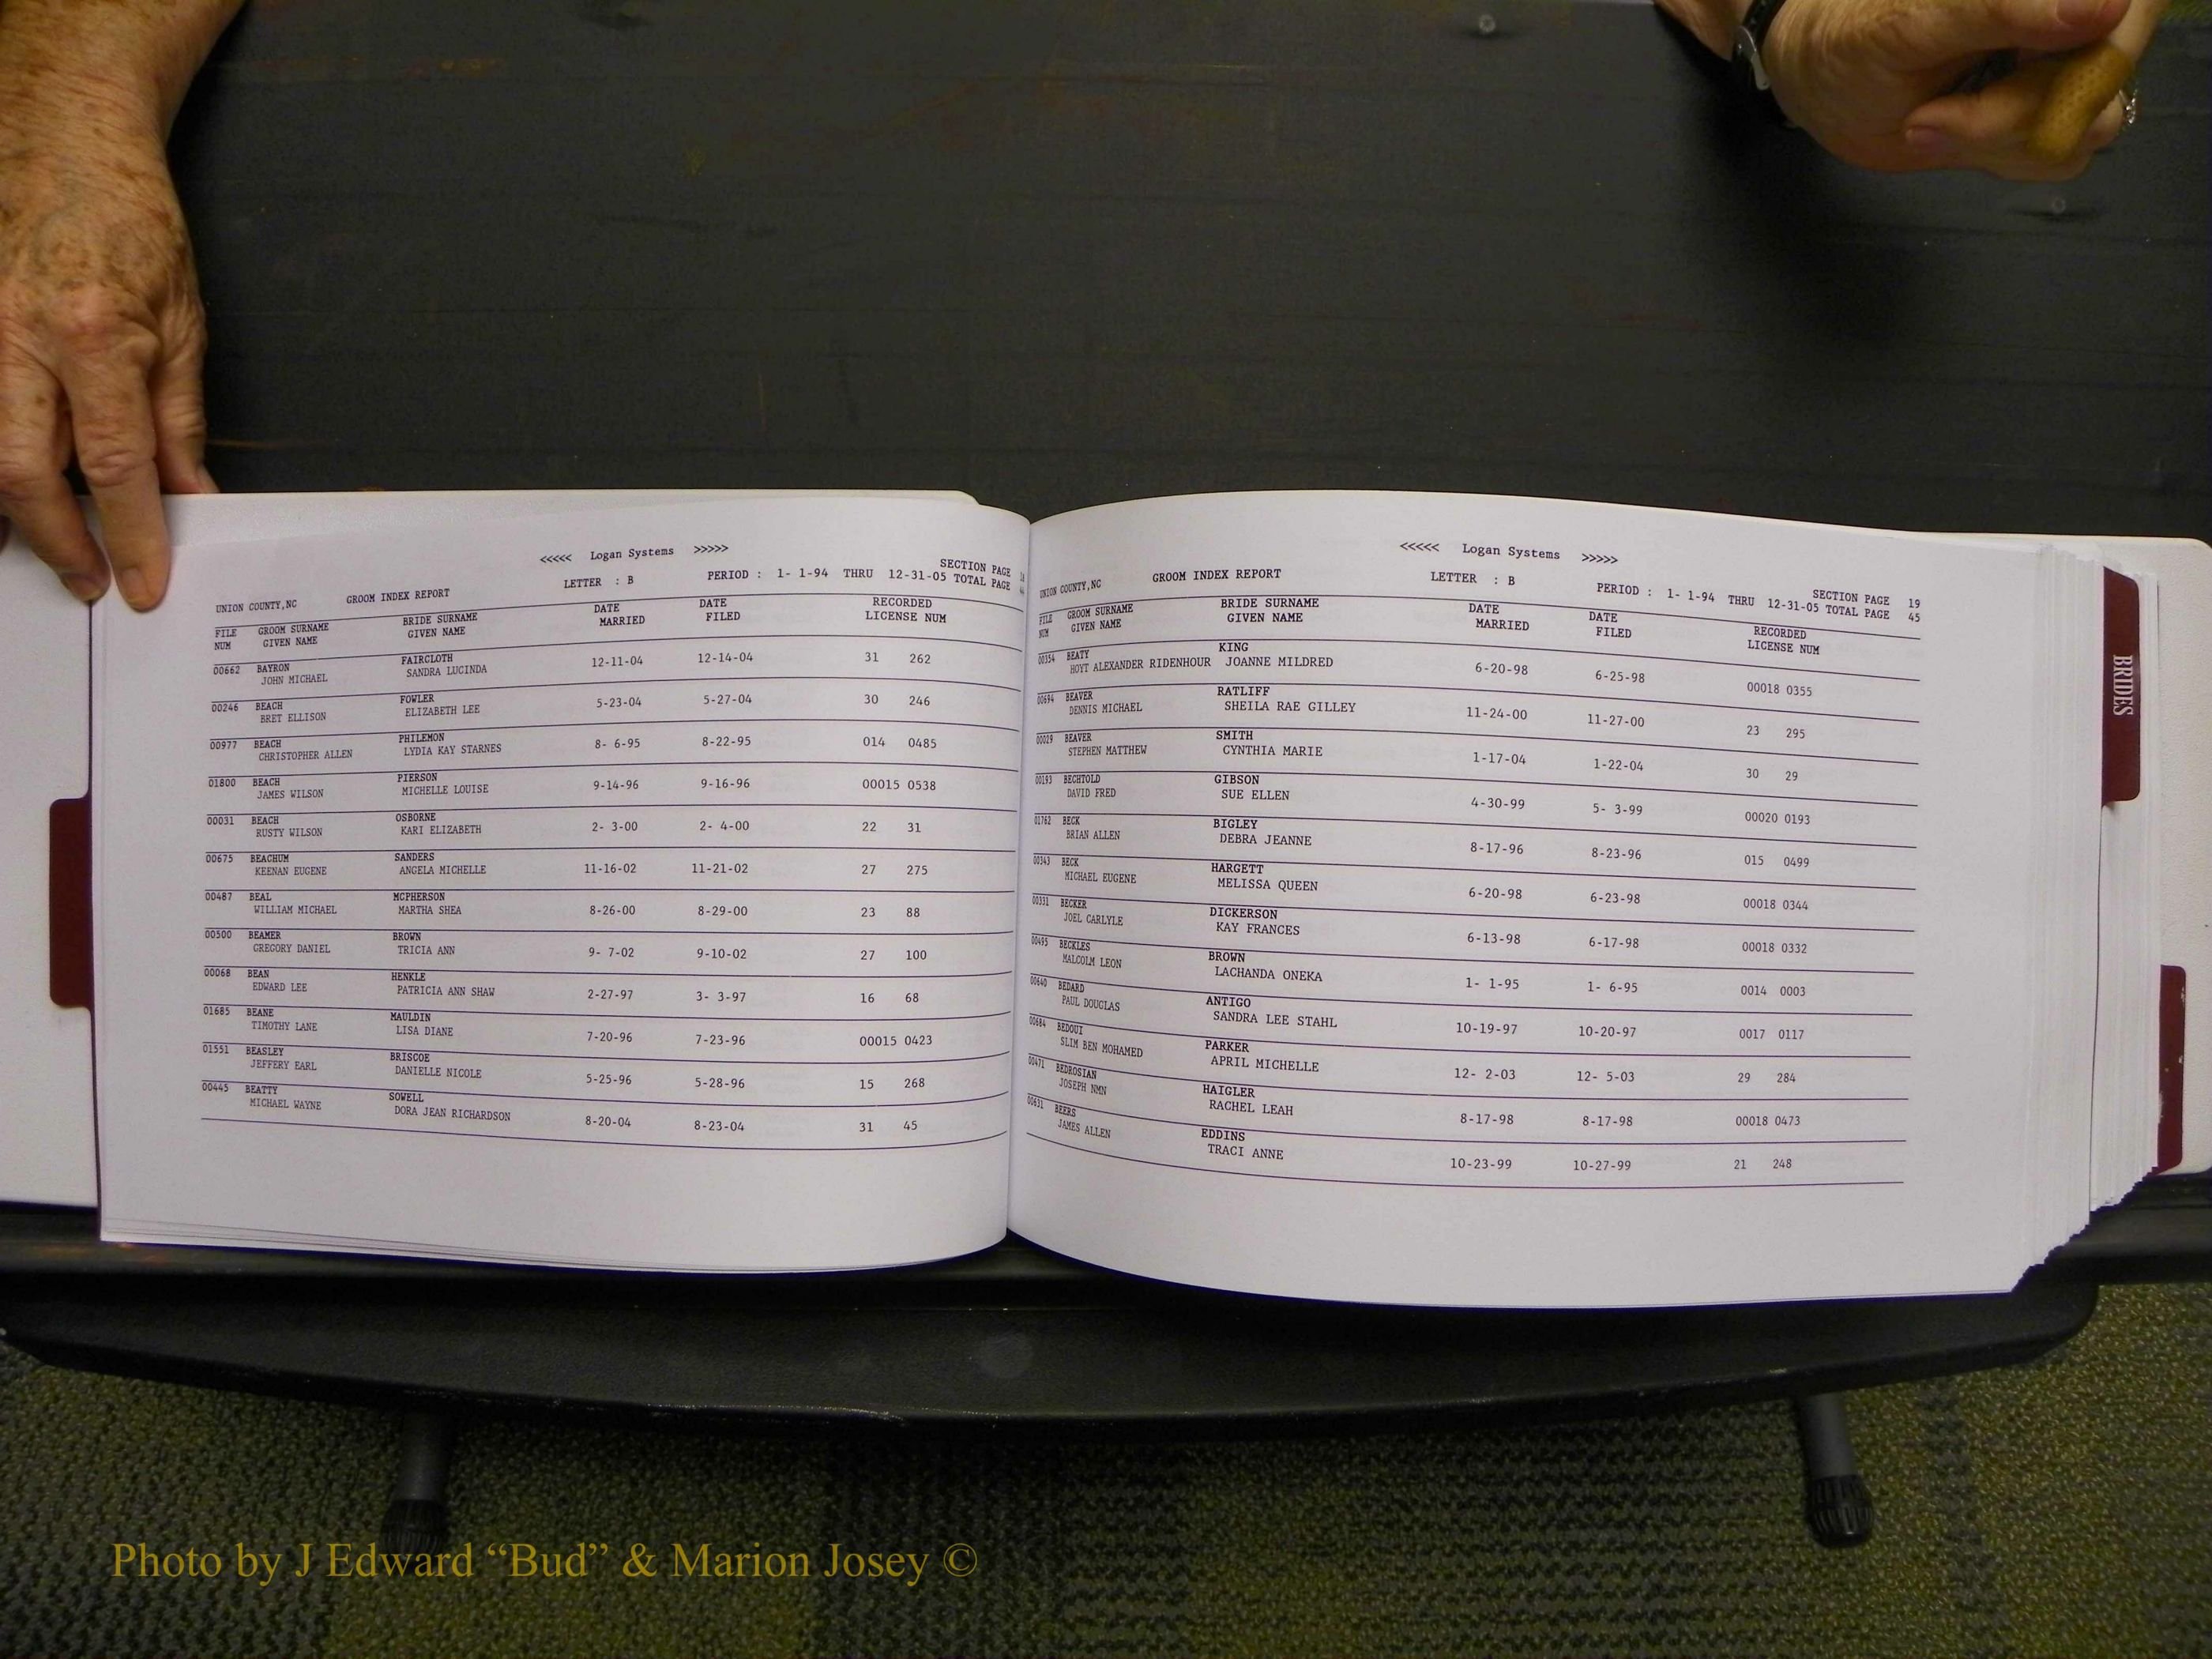 <<<<< Logan Systems >>>>>
UNION COUNTY,NC GROOM INDEX REPORT LETTER : B PERIOD : 1- 1-94 THRU 12-31-05 SECTION PAGE
TOTAL PAGE
FILE GROOM SURNAME BRIDE SURNAME DATE DATE RECORDED
NUM GIVEN NAME GIVEN NAME MARRIED FILED LICENSE NUM
00662 BAYRON FAIRCLOTH 12-11-04 12-14-04 31 262
JOHN MICHAEL SANDRA LUCINDA
00246 BEACH FOWLER 5-23-04 5-27-04 30 246
BRET ELLISON ELIZABETH LEE
00977 BEACH PHILEMON 8- 6-95 8-22-95 014 0485
CHRISTOPHER ALLEN LYDIA KAY STARNES
01800 BEACH PIERSON 9-14-96 9-16-96 00015 0538
JAMES WILSON MICHELLE LOUISE
00031 BEACH OSBORNE 2- 3-00 2- 4-00 22 31
RUSTY WILSON KARI ELIZABETH
00675 BEACHUM SANDERS 11-16-02 11-21-02 27 275
KEENAN EUGENE ANGELA MICHELLE
00487 BEAL MCPHERSON 8-26-00 8-29-00 23 88
WILLIAM MICHAEL MARTHA SHEA
00500 BEAMER BROWN 9- 7-02 9-10-02 27 100
GREGORY DANIEL TRICIA ANN
00068 BEAN HENKLE 2-27-97 3- 3-97 16 68
EDWARD LEE PATRICIA ANN SHAW
01685 BEANE MAULDIN 7-20-96 7-23-96 00015 0423
TIMOTHY LANE LISA DIANE
01551 BEASLEY BRISCOE 5-25-96 5-28-96 15 268
JEFFERY EARL DANIELLE NICOLE
00445 BEATTY SOWELL 8-20-04 8-23-04 31 45
MICHAEL WAYNE DORA JEAN RICHARDSON
<<<<< Logan Systems >>>>>
UNION COUNTY,NC GROOM INDEX REPORT LETTER : B PERIOD : 1- 1-94 THRU 12-31-05 SECTION PAGE 19
TOTAL PAGE 45
FILE GROOM SURNAME BRIDE SURNAME DATE DATE RECORDED
NUM GIVEN NAME GIVEN NAME MARRIED FILED LICENSE NUM
00354 BEATY KING 6-20-98 6-25-98 00018 0355
HOYT ALEXANDER RIDENHOUR JOANNE MILDRED
00694 BEAVER RATLIFF 11-24-00 11-27-00 23 295
DENNIS MICHAEL SHEILA RAE GILLEY
00029 BEAVER SMITH 1-17-04 1-22-04 30 29
STEPHEN MATTHEW CYNTHIA MARIE
00193 BECHTOLD GIBSON 4-30-99 5- 3-99 00020 0193
DAVID FRED SUE ELLEN
01762 BECK BIGLEY 8-17-96 8-23-96 015 0499
BRIAN ALLEN DEBRA JEANNE
00343 BECK HARGETT 6-20-98 6-23-98 00018 0344
MICHAEL EUGENE MELISSA QUEEN
00331 BECKER DICKERSON 6-13-98 6-17-98 00018 0332
JOEL CARLYLE KAY FRANCES
00495 BECKLES BROWN 1- 1-95 1- 6-95 0014 0003
MALCOLM LEON LACHANDA ONEKA
00640 BEDARD ANTIGO 10-19-97 10-20-97 0017 0117
PAUL DOUGLAS SANDRA LEE STAHL
00684 BEDOUI PARKER 12- 2-03 12- 5-03 29 284
SLIM BEN MOHAMED APRIL MICHELLE
00471 BEDROSIAN HAIGLER 8-17-98 8-17-98 00018 0473
JOSEPH NMN RACHEL LEAH
00631 BEERS EDDINS 10-23-99 10-27-99 21 248
JAMES ALLEN TRACI ANNE
BRIDES
Photo by J Edward “Bud” & Marion Josey ©